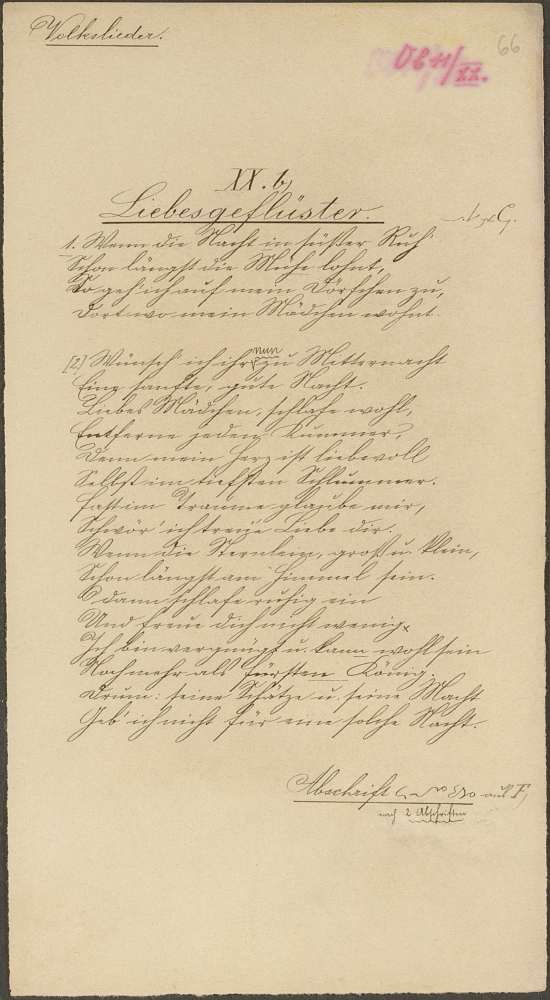 Volkslieder.
66
XX. b)
Liebesgeflüster.
1. Wenn die Nacht in süßer Ruh'
Schon längst die Mühe lohnt,
So geh' ich auf mein Dörfchen zu,
Dort wo mein Mädchen wohnt.
[2] Wünsch' ich ihr nun zu Mitternacht
Eine sanfte, gute Nacht.
Liebes Mädchen, schlafe wohl,
Entferne jeden Kummer,
Denn mein Herz ist liebevoll
Selbst im tiefsten Schlummer.
Fast im Traume glaube mir,
Schwör' ich treue Liebe dir.
Wenn die Sternlein, groß u. klein,
Schon längst am Himmel sein.
O dann schlafe ruhig ein
Und freue dich nicht wenig.
Ich bin vergnügt u. kann wohl sein
Noch mehr als Fürsten König.
Drum: seine Schätze u. seine Macht
Geb' ich nicht für eine solche Nacht.
Abschrift
nach 2 Abschriften